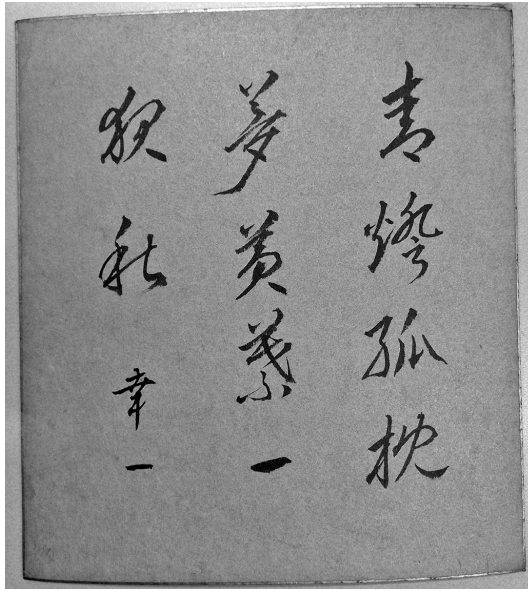 青燈孤枕
夢黄葉一
秋 幸一